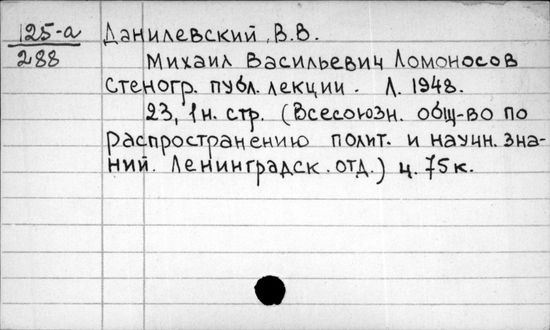 125-а Данилевский, В.В.
288 Михаил Васильевич Ломоносов
Стеногр. публ. лекции. Л. 1948.
23, 1 н. стр. (Всесоюзн. общ-во по
распространению полит. и научн. зна-
ний. Ленинградск. отд.) ц. 75 к.